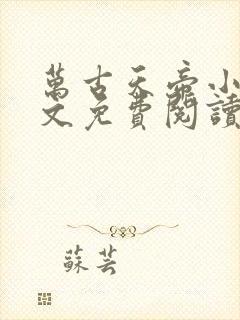 萬古天帝小
文免費閱讀
蘇芸